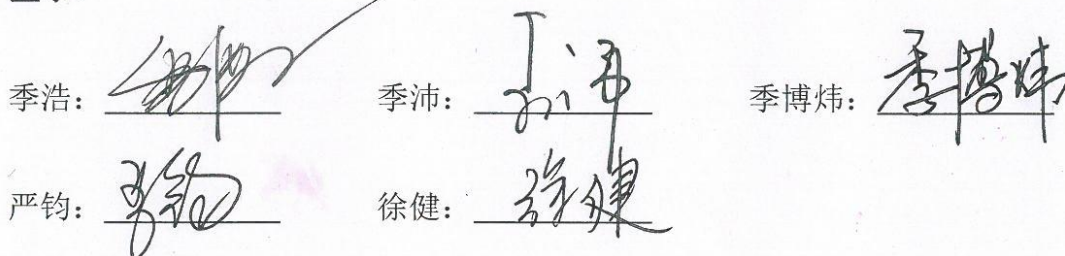 季浩： 季沛： 季博炜：季博炜
严钧：严钧 徐健：徐健